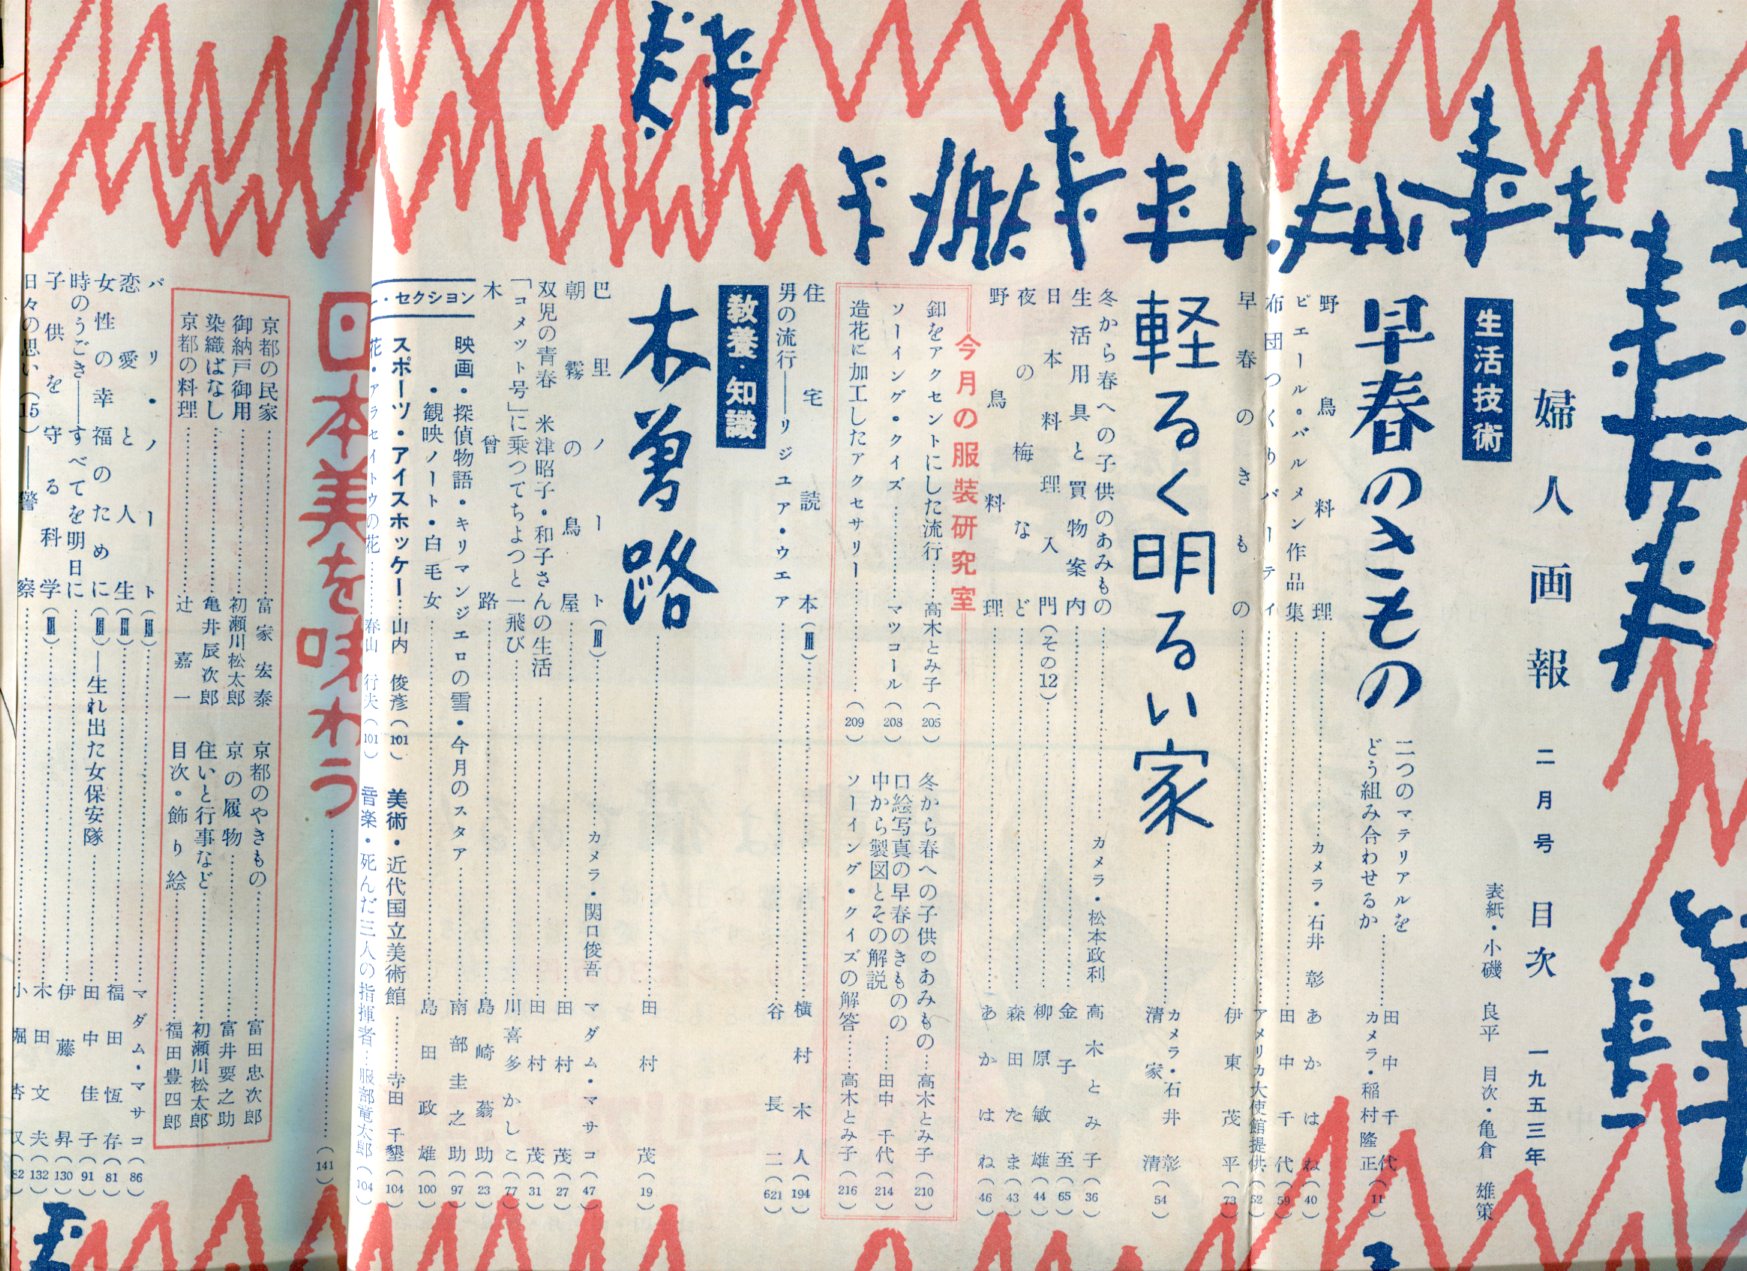 婦人画報 二月号 目次 一九五三年
表紙・小磯良平 目次・亀倉雄策
生活技術
早春のきもの 二つのマテリアルをどう組み合わせるか……田中千代 カメラ・稲村隆正(11)
野鳥料理……カメラ・石井彰 あかはね(40)
ピエール・バルメン作品集……田中千代(59)
布団つくりパーティ……アメリカ大使館提供(52)
早春のきもの……伊東茂平(73)
軽るく明るい家……カメラ・石井彰 清家清(54)
冬から春への子供のあみもの……カメラ・松本政利 高木とみ子(36)
生活用具と買物案内……金子至(65)
日本料理入門(その12)……柳原敏雄(44)
夜の梅など……森田たま(43)
野鳥料理……あかはね(46)
今月の服装研究室
釦をアクセントにした流行……高木とみ子(205)
ソーイング・クイズ……マツコール(208)
造花に加工したアクセサリー……(209)
冬から春への子供のあみもの……高木とみ子(210)
口絵写真の早春のきものの中から製図とその解説……田中千代(214)
ソーイング・クイズの解答……高木とみ子(216)
住宅読本(Ⅲ)……横村木人(194)
男の流行――リジユア・ウエア……谷長二(621)
教養・知識
木曽路……田村茂(19)
巴里ノート(Ⅲ)……カメラ・関口俊吾 マダム・マサコ(47)
朝霧の鳥屋……田村茂(27)
双児の青春 米津昭子・和子さんの生活……田村茂(31)
「コメット号」に乗つてちよつと一飛び……川喜多かしこ(77)
木曽路……島崎蓊助(23)
映画・探偵物語・キリマンジエロの雪・今月のスタア……南部圭之助(97)
・観映ノート・白毛女……島田政雄(100)
・セクション
スポーツ・アイスホッケー……山内俊彦(101)
美術・近代国立美術館……寺田千墾(104)
花・アラセイトウの花……春山行夫(101)
音楽・死んだ三人の指揮者……服部竜太郎(104)
日本美を味わう……(141)
京都の民家……富家宏泰
御納戸御用……初瀬川松太郎
染織ばなし……亀井辰次郎
京都の料理……辻嘉一
京都のやきもの……富田忠次郎
京の履物……富井要之助
住いと行事など……初瀬川松太郎
目次・飾り絵……福田豊四郎
パリ・ノート(Ⅲ)……マダム・マサコ(86)
恋愛と人生(Ⅲ)……福田恆存(81)
女性の幸福のために(Ⅲ)――生れ出た女保安隊……田中佳子(91)
時のうごき――すべてを明日に……伊藤昇(130)
子供を守る科学(Ⅲ)……木田文夫(132)
日々の思い(15)――警察……小堀杏奴(82)